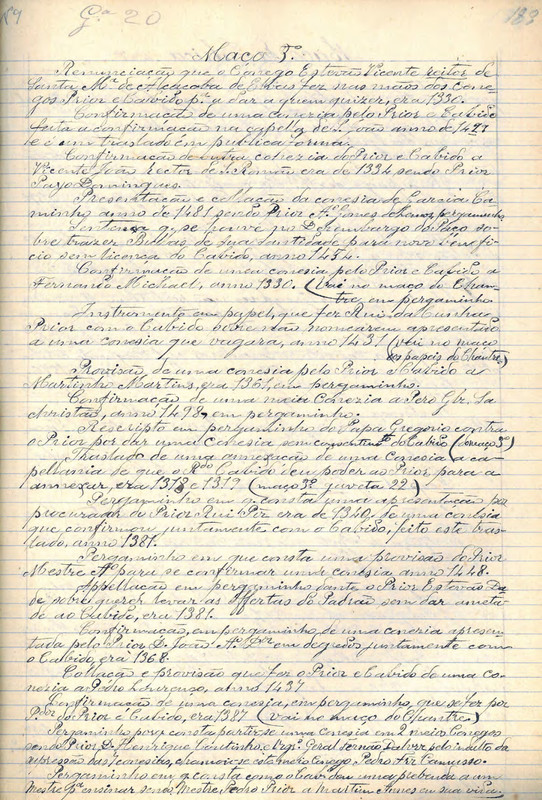 Gª 20
183
Maço 5.
Renunciação que o Conego Estevão Vicente reitor de
Santa Mª de Alcaçaba de Elvas fez nas mãos dos Cone-
gos Prior e Cabido pª a dar a quem quizer, era 1330.
Confirmação de uma conezia pelo Prior e Cabido
feita a confirmação na capella de S. João anno de 1421
e é um traslado em publica forma.
Confirmação de outra conezia do Prior e Cabido a
Vicente João rector de S. Romão era de 1334 sendo Prior
Payo Domingues.
Presentação e collação da conesia de Garcia Ca-
minho anno de 1481 sendo Prior Gomes pergaminho
Sentença q. se houve no Dezembargo do Paço so-
bre trazer Bullas de Sua Santidade para novo benefi-
cio sem licença do Cabido, anno 1434.
Confirmação de uma conesia pelo Prior e Cabido a
Fernando Michael, anno 1330. (vai no maço do Chan-
tre, em pergaminho
Instrumento em papel, que fez Rui da Cunha
Prior com o Cabido sobre não nomearem apresentado
a uma conesia que vagara, anno 1431 (vai no maço
dos papeis do Chantre)
Provisão de uma conesia pelo Prior e Cabido a
Martinho Martins, era 1361, em pergaminho.
Confirmação de uma meia Conezia a Pero Glz. Sa
christão, anno 1428, em pergaminho.
Rescripto em pergaminho do Papa Gregorio contra
o Prior por dar uma conesia sem consentimto do Cabido (do maço 3º)
Traslado de uma annexação de uma Conesia a ca-
pellania de que o Rdo Cabido deu poder ao Prior para a
annexar, era 1318 e 1319 (maço 3º gaveta 22)
Pergaminho em q. consta uma apresentação por
procurador do Prior Rui Piz era de 1340, de uma conesia
que, confirmou juntamente com o Cabido, feito este tras-
lado, anno 1387.
Pergaminho em que consta uma provisão do Prior
Mestre Aº para se confirmar uma conesia anno 1448.
Appellação em pergaminho dante o Prior Estevão Da
de sobre querer levar as offertas do Padrão sem dar ameta-
de ao Cabido, era 1381.
Confirmação, em pergaminho, de uma conezia apresen-
tada pelo Prior D. João Aº Dor em degredos juntamente com
o Cabbido, era 1368.
Collação e provisão que fez o Prior e Cabido de uma co-
nezia a Pedro Lourenço, anno 1437
Confirmação de uma conesia, em pergaminho, que se fez por
Pdor do Prior e Cabido, era 1387 (vai no maço do Chantre)
Pergaminho porq. consta partir-se uma Conesia em 2 meios Conegos
sendo Prior D. Henrique Coutinho, e Vigº Geral
supressão das 7 conesias, chamou-se este meio Conego Pedro Camusso.
Pergaminho em q. consta como o Cabido deu uma prebenda a um
Mestre pª ensinar sendo Mestre Pedro Prior a Martim Annes em sua vida.